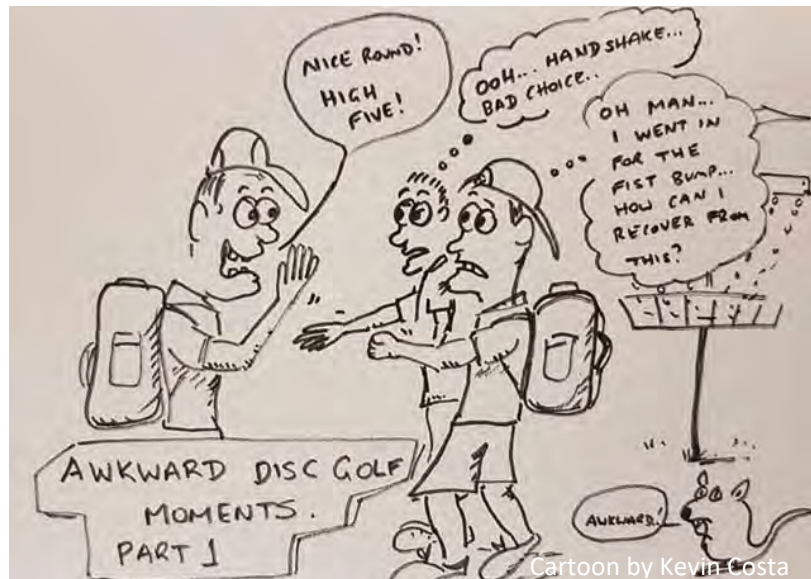 NICE ROUND!
HIGH
FIVE!
OOH... HANDSHAKE...
BAD CHOICE..
OH MAN...
I WENT IN
FOR THE
FIST BUMP...
HOW CAN I
RECOVER FROM
THIS?
AWKWARD DISC GOLF
MOMENTS.
PART 1
AWKWARD!
Cartoon by Kevin Costa